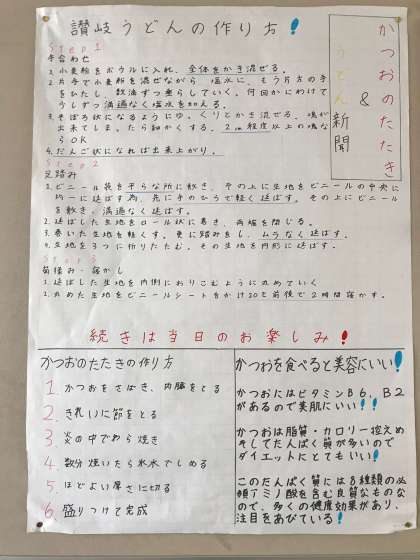 讃岐うどんの作り方!
かつおのたたき
&
うどん新聞
Step1
手合わせ
1.小麦粉をボウルに入れ、全体をかき混ぜる。
2.片手で小麦粉を混ぜながら 塩水に、もう片方の手
をひたし、数滴ずつ垂らしていく。何回かにわけて
少しずつ満遍なく塩水を加える。
3.そぼろ状になるようにゆっくりとかき混ぜる。塊が
出来てしまったら細かくする。2cm程度以上の塊な
らOK
4.だんご状になれば出来上がり。
Step2
足踏み
1.ビニール袋を平らな所に敷き、その上に生地をビニールの中央に
均一に延ばす為、先に手のひらで軽く延ばす。その上にビニール
を敷き、満遍なく延ばす。
2.延ばした生地をロール状に巻き、両端を閉じる。
3.巻いた生地を軽くす。更に踏みをし、ムラなく延ばす。
4.生地を3つに折りたたむ。その生地を円形に延ばす。
Step3
菊揉み・寝かし
1.延ばした生地を内側におりこむように丸めていく
2.丸めた生地をビニールシートをかけ20℃前後で2時間寝かす。
続きは当日のお楽しみ!
かつおのたたきの作り方
1.かつおをさばき、内臓をとる
2.きれいに節をとる
3.炎の中でわら焼き
4.数分焼いたら氷水でしめる
5.ほどよい厚さに切る
6.盛りつけて完成
かつおを食べると美容にいい!
かつおにはビタミンB6、B2
があるので美肌にいい!!
かつおは脂質・カロリー控えめ
そしてたんぱく質が多いので
ダイエットにとてもいい!
このたんぱく質には8種類の必
須アミノ酸を含む良質なものな
ので、多くの健康効果があり、
注目をあびている!